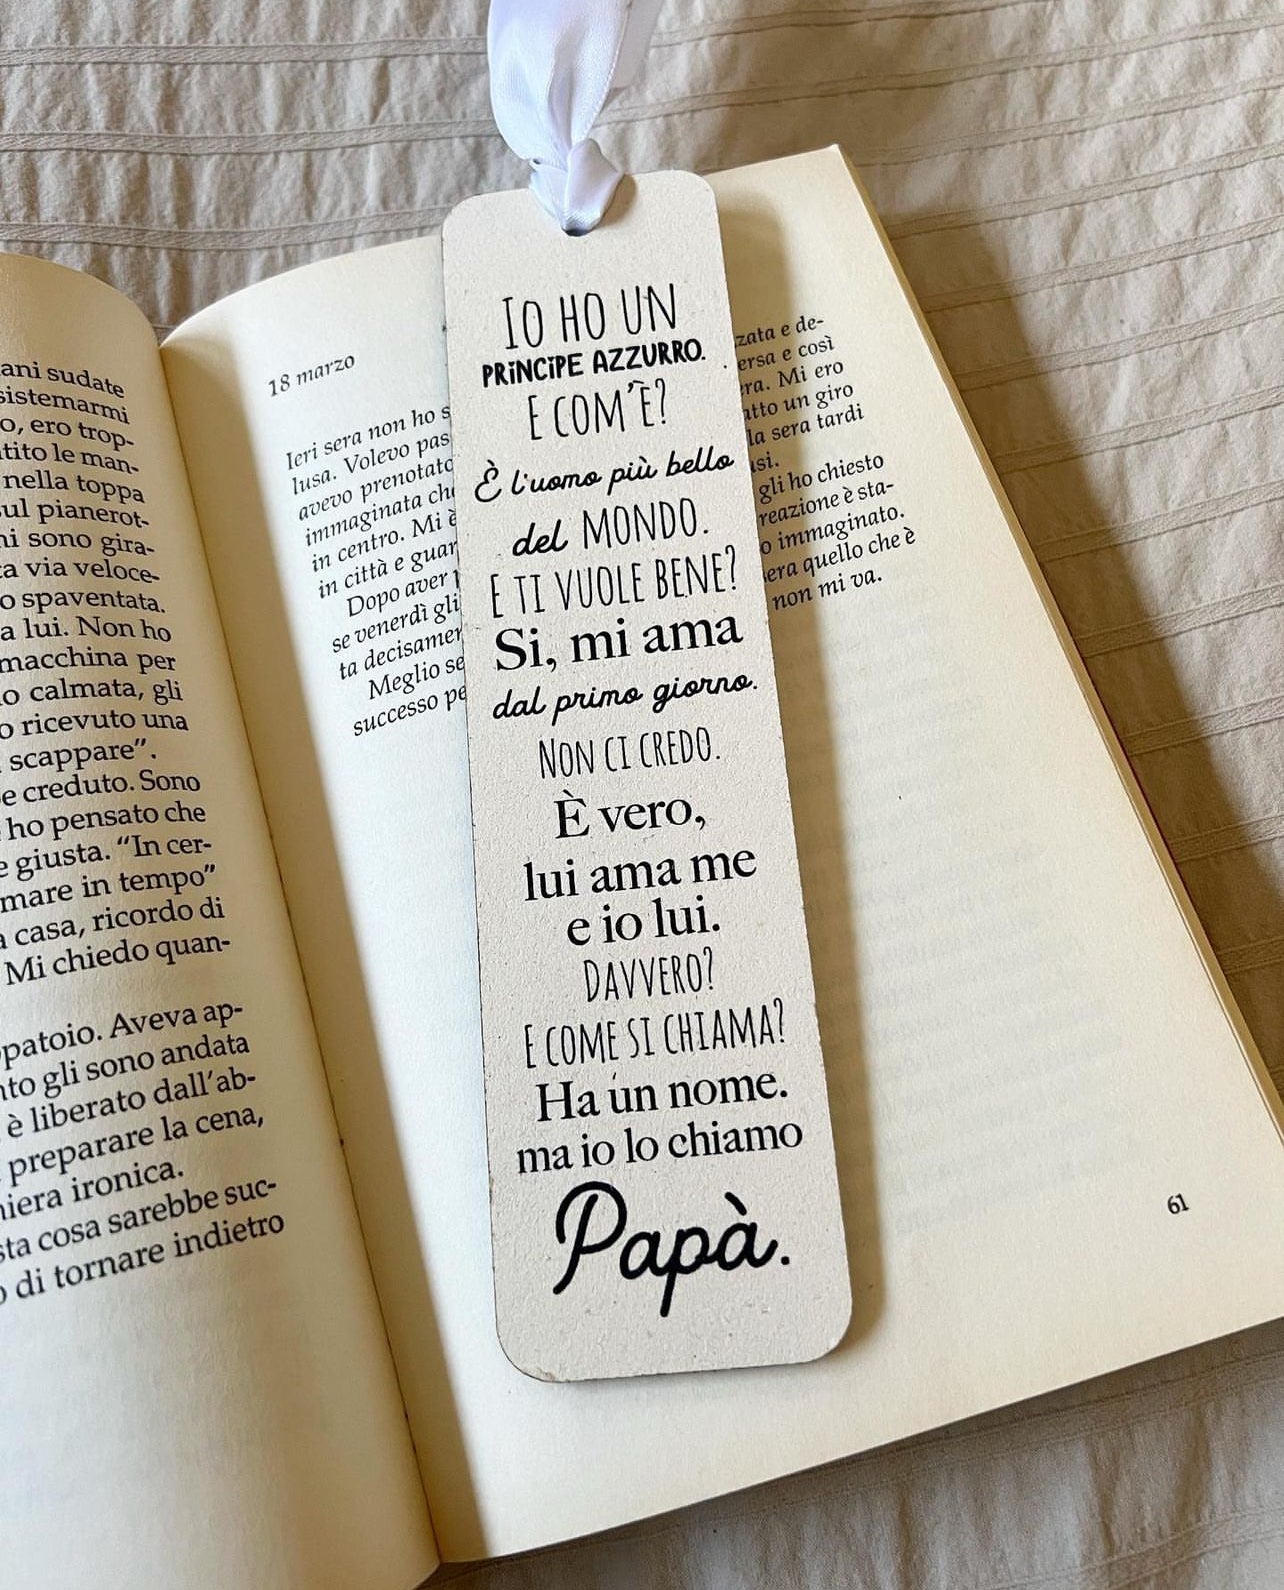 ani sudate
sistemarmi
o, ero trop-
tito le man-
nella toppa
sul pianerot-
mi sono gira-
a via veloce-
o spaventata.
a lui. Non ho
macchina per
o calmata, gli
o ricevuto una
scappare”.
e creduto. Sono
ho pensato che
e giusta. “In cer-
mare in tempo”
a casa, ricordo di
Mi chiedo quan-
patoio. Aveva ap-
nto gli sono andata
è liberato dall'ab-
preparare la cena,
niera ironica.
sta cosa sarebbe suc-
o di tornare indietro
18 marzo
Ieri sera non ho s
lusa. Volevo pas
avevo prenotato
immaginata che
in centro. Mi è
in città e guar
Dopo aver
se venerdì gli
ta decisamer
Meglio se
successo pe
IO HO UN
PRINCIPE AZZURRO.
E COM'È?
È l'uomo più bello
del MONDO.
E TI VUOLE BENE?
Si, mi ama
dal primo giorno.
NON CI CREDO.
È vero,
lui ama me
e io lui.
DAVVERO?
E COME SI CHIAMA?
Ha un nome.
ma io lo chiamo
Papà.
zata e de-
ersa e così
ra. Mi ero
atto un giro
la sera tardi
si.
gli ho chiesto
reazione è sta-
o immaginato.
era quello che è
non mi va.
61